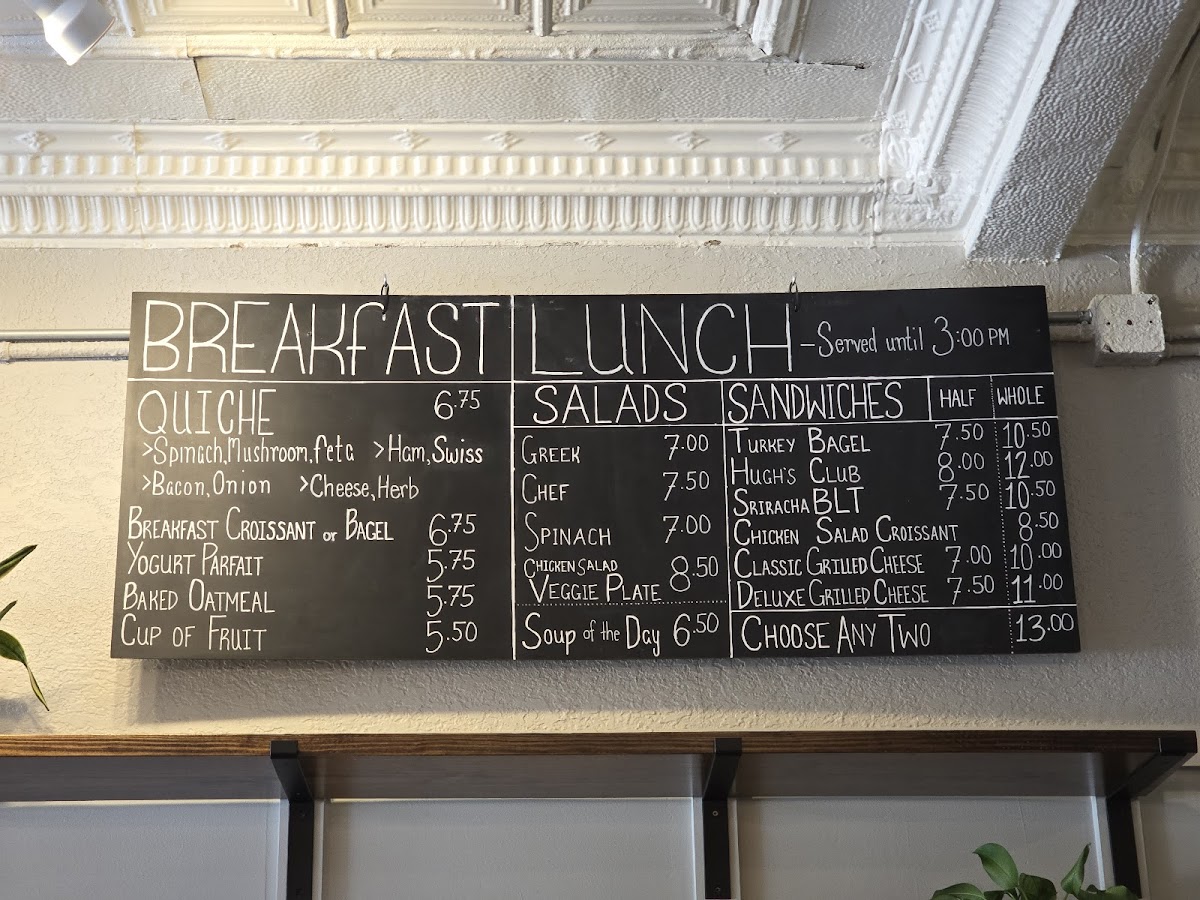 BREAKFAST
QUICHE 6.75
>Spinach, Mushroom, feta >Ham, Swiss
>Bacon, Onion >Cheese, Herb
BREAKFAST CROISSANT or BAGEL 6.75
YOGURT PARFAIT 5.75
BAKED OATMEAL 5.75
CUP OF FRUIT 5.50
LUNCH – Served until 3:00 PM
SALADS
GREEK 7.00
CHEF 7.50
SPINACH 7.00
CHICKEN SALAD
VEGGIE PLATE 8.50
Soup of the Day 6.50
SANDWICHES HALF WHOLE
TURKEY BAGEL 7.50 10.50
HUGH'S CLUB 8.00 12.00
SRIRACHA BLT 7.50 10.50
CHICKEN SALAD CROISSANT 8.50
CLASSIC GRILLED CHEESE 7.00 10.00
DELUXE GRILLED CHEESE 7.50 11.00
CHOOSE ANY TWO 13.00